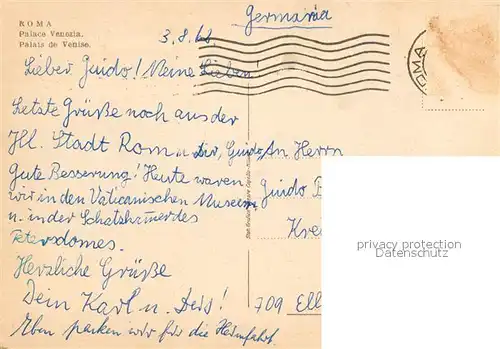 ROMA
Palace Venezia.
Palais de Venise.
Germania
3.8.68
Lieber Guido! Meine Lieben
Letzte Grüße noch aus der
Hl. Stadt Rom u. Dir, Guido,
Gute Besserung! Heute waren
wir in den Vaticanischen Museen,
u. in der Schatzkammer des
Petersdomes.
Herzliche Grüße
Dein Karl u. Deis!
Eben packen wir für die Heimfahrt.
An Herrn
Guido
Kre
709 Ell
ROMA
privacy protection
Datenschutz